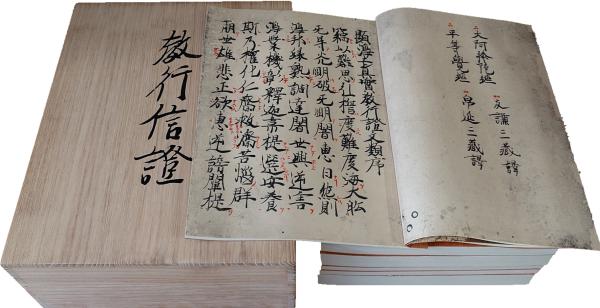 教行信證
大阿弥陀経
支謙三蔵譯
平等覺経
帛延三蔵譯
顯浄土真實教行證文類序
竊以難思弘誓度難度海大舩
无㝵光明破无明闇恵日然則
浄邦縁熟調達闍世興逆害
浄業機彰釋迦韋提選安養
斯乃權化仁齊救濟苦惱群
萠世雄悲正欲恵逆謗闡提